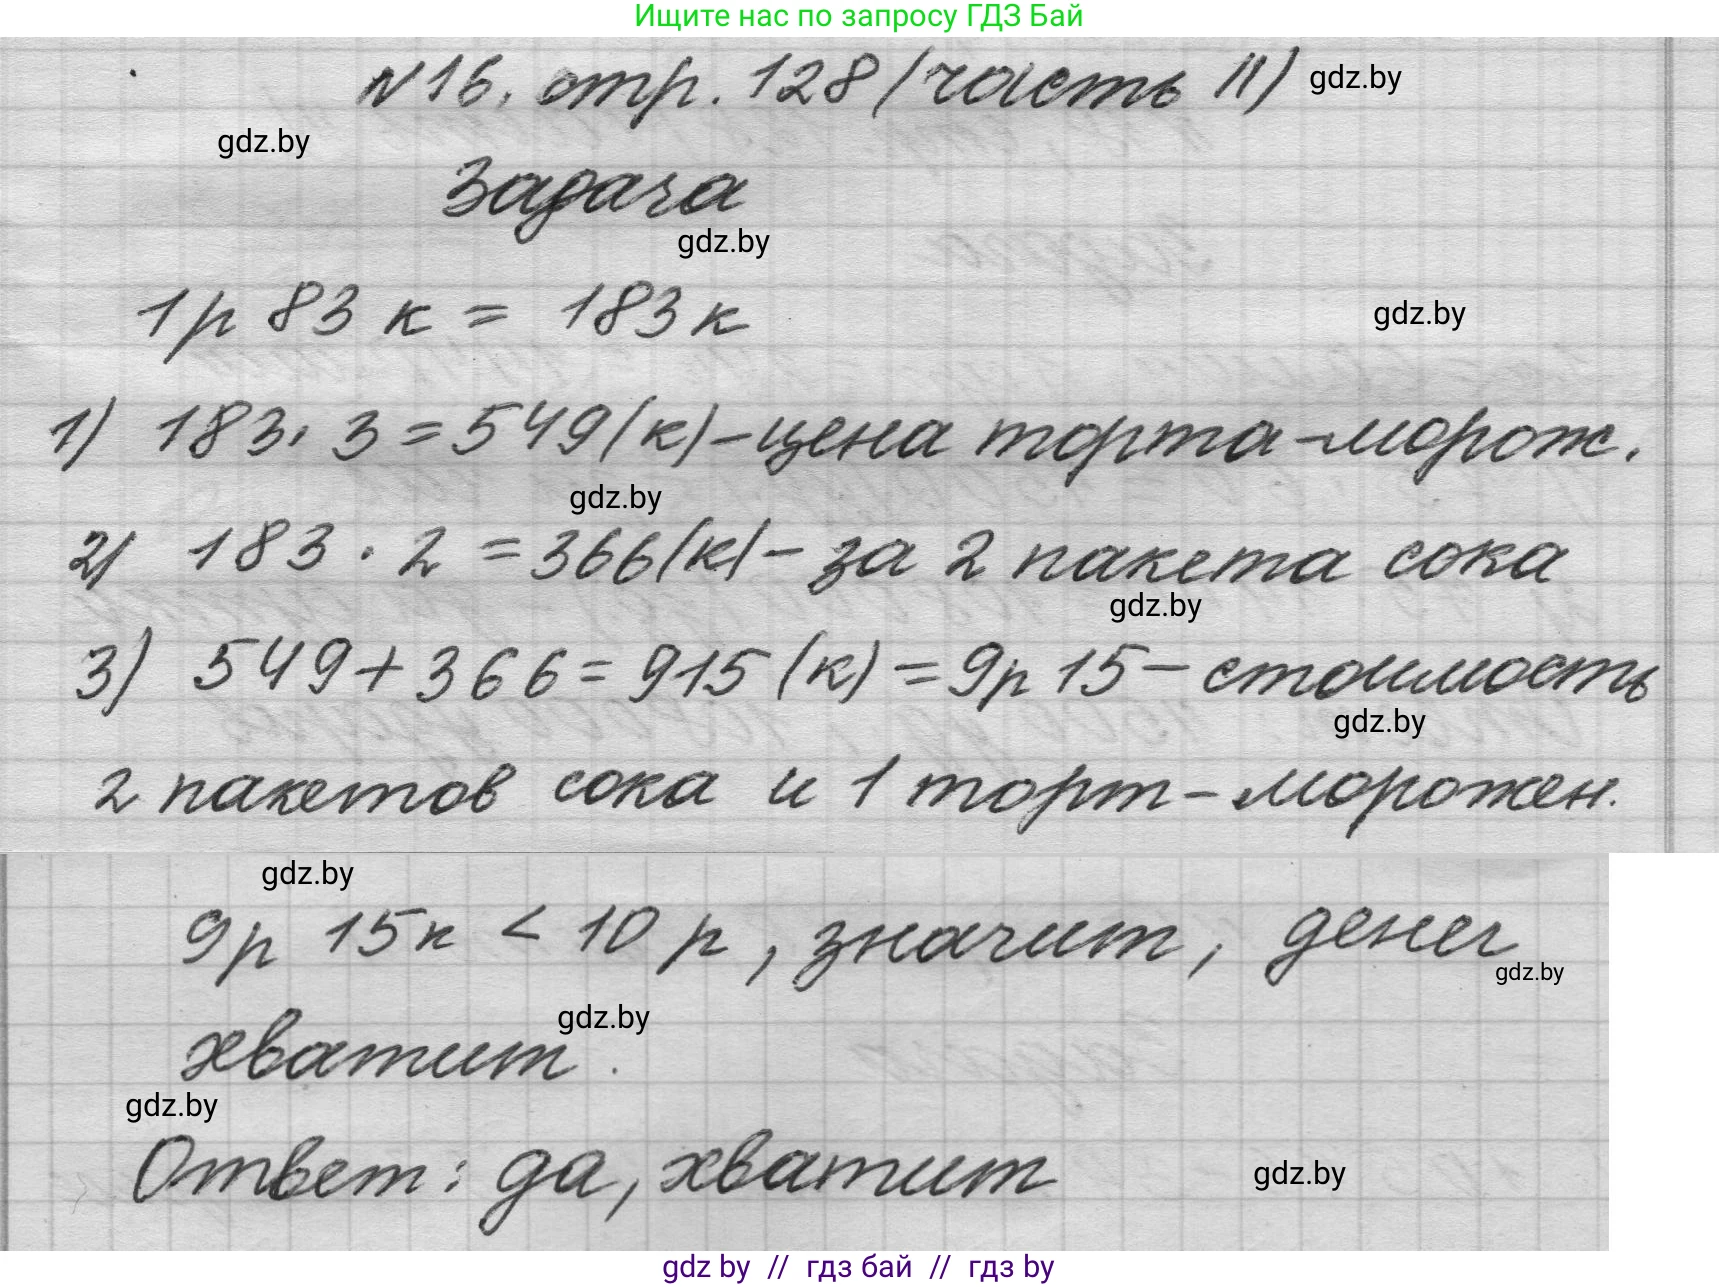 Ищите нас по запросу ГДЗ Бай
№16, стр. 128 (часть II) gdz.by
gdz.by
Задача
gdz.by
1р 83 к = 183 к
gdz.by
1) 183 · 3 = 549 (к) – цена торта-морож.
gdz.by
2) 183 · 2 = 366 (к) – за 2 пакета сока
gdz.by
3) 549 + 366 = 915 (к) = 9р 15 – стоимость
gdz.by
2 пакетов сока и 1 торт-морожен.
gdz.by
9р 15к < 10 р, значит, денег
gdz.by
хватит.
gdz.by
gdz.by
Ответ: да, хватит
gdz.by
gdz by // гдз бай // гдз by